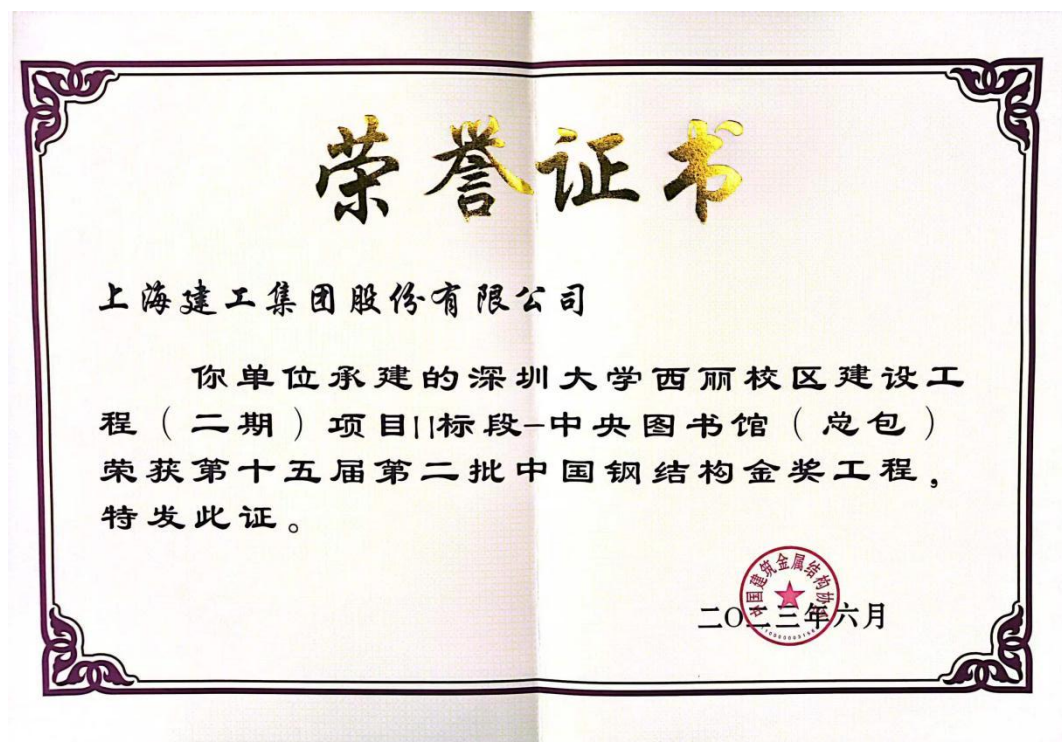 荣誉证书
上海建工集团股份有限公司
你单位承建的深圳大学西丽校区建设工
程（二期）项目II标段-中央图书馆（总包）
荣获第十五届第二批中国钢结构金奖工程，
特发此证。
中国建筑金属结构协会
二〇二三年六月